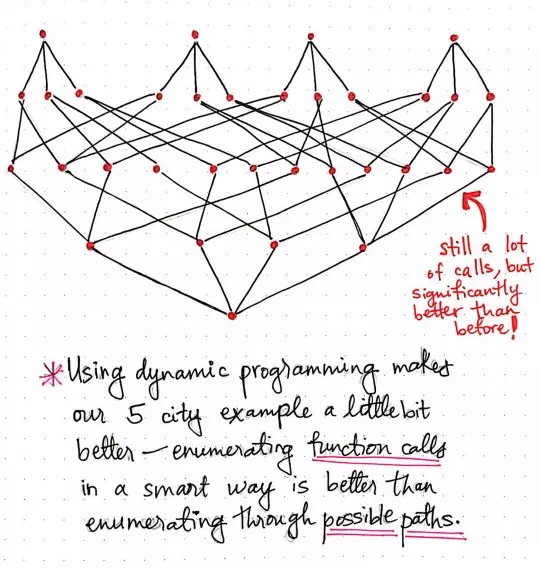 still a lot
of calls, but
significantly
better than
before!
* Using dynamic programming makes
our 5 city example a little bit
better — enumerating function calls
in a smart way is better than
enumerating through possible paths.